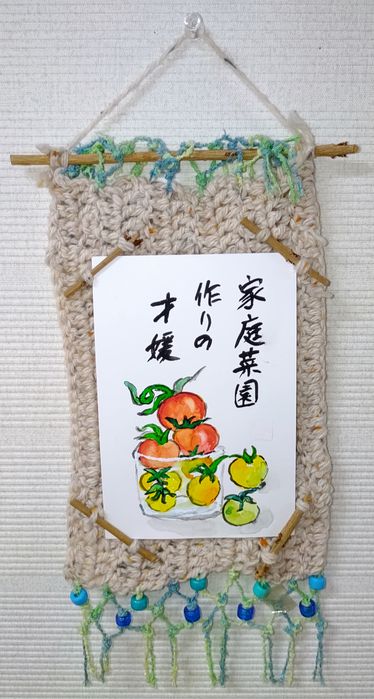 家庭菜園
作りの
才媛